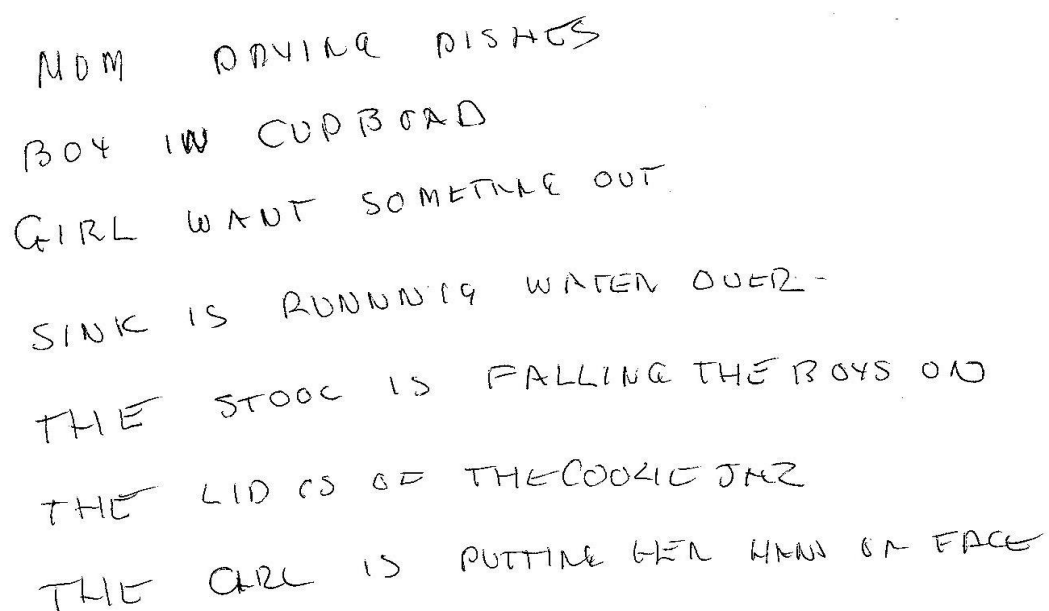 MOM DRYING DISHES
BOY IN CUPBOAD
GIRL WANT SOMETING OUT
SINK IS RUNNNIG WATER OVER-
THE STOOL IS FALLING THE BOYS ON
THE LID IS OF THE COOKIE JAR
THE GIRL IS PUTTING HER HAND ON FACE